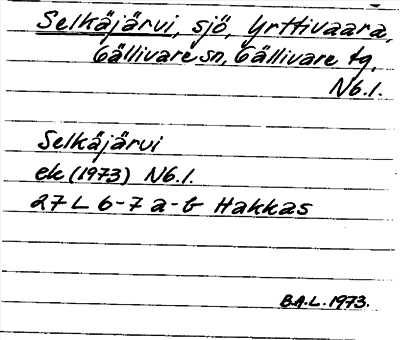 Selkäjärvi, sjö, Yrttivaara,
Gällivare sn, Gällivare tg,
Nb. l.
Selkäjärvi
ek (1973) Nb. l.
27 L 6-7 a-b Hakkas
B.A.L. 1973.